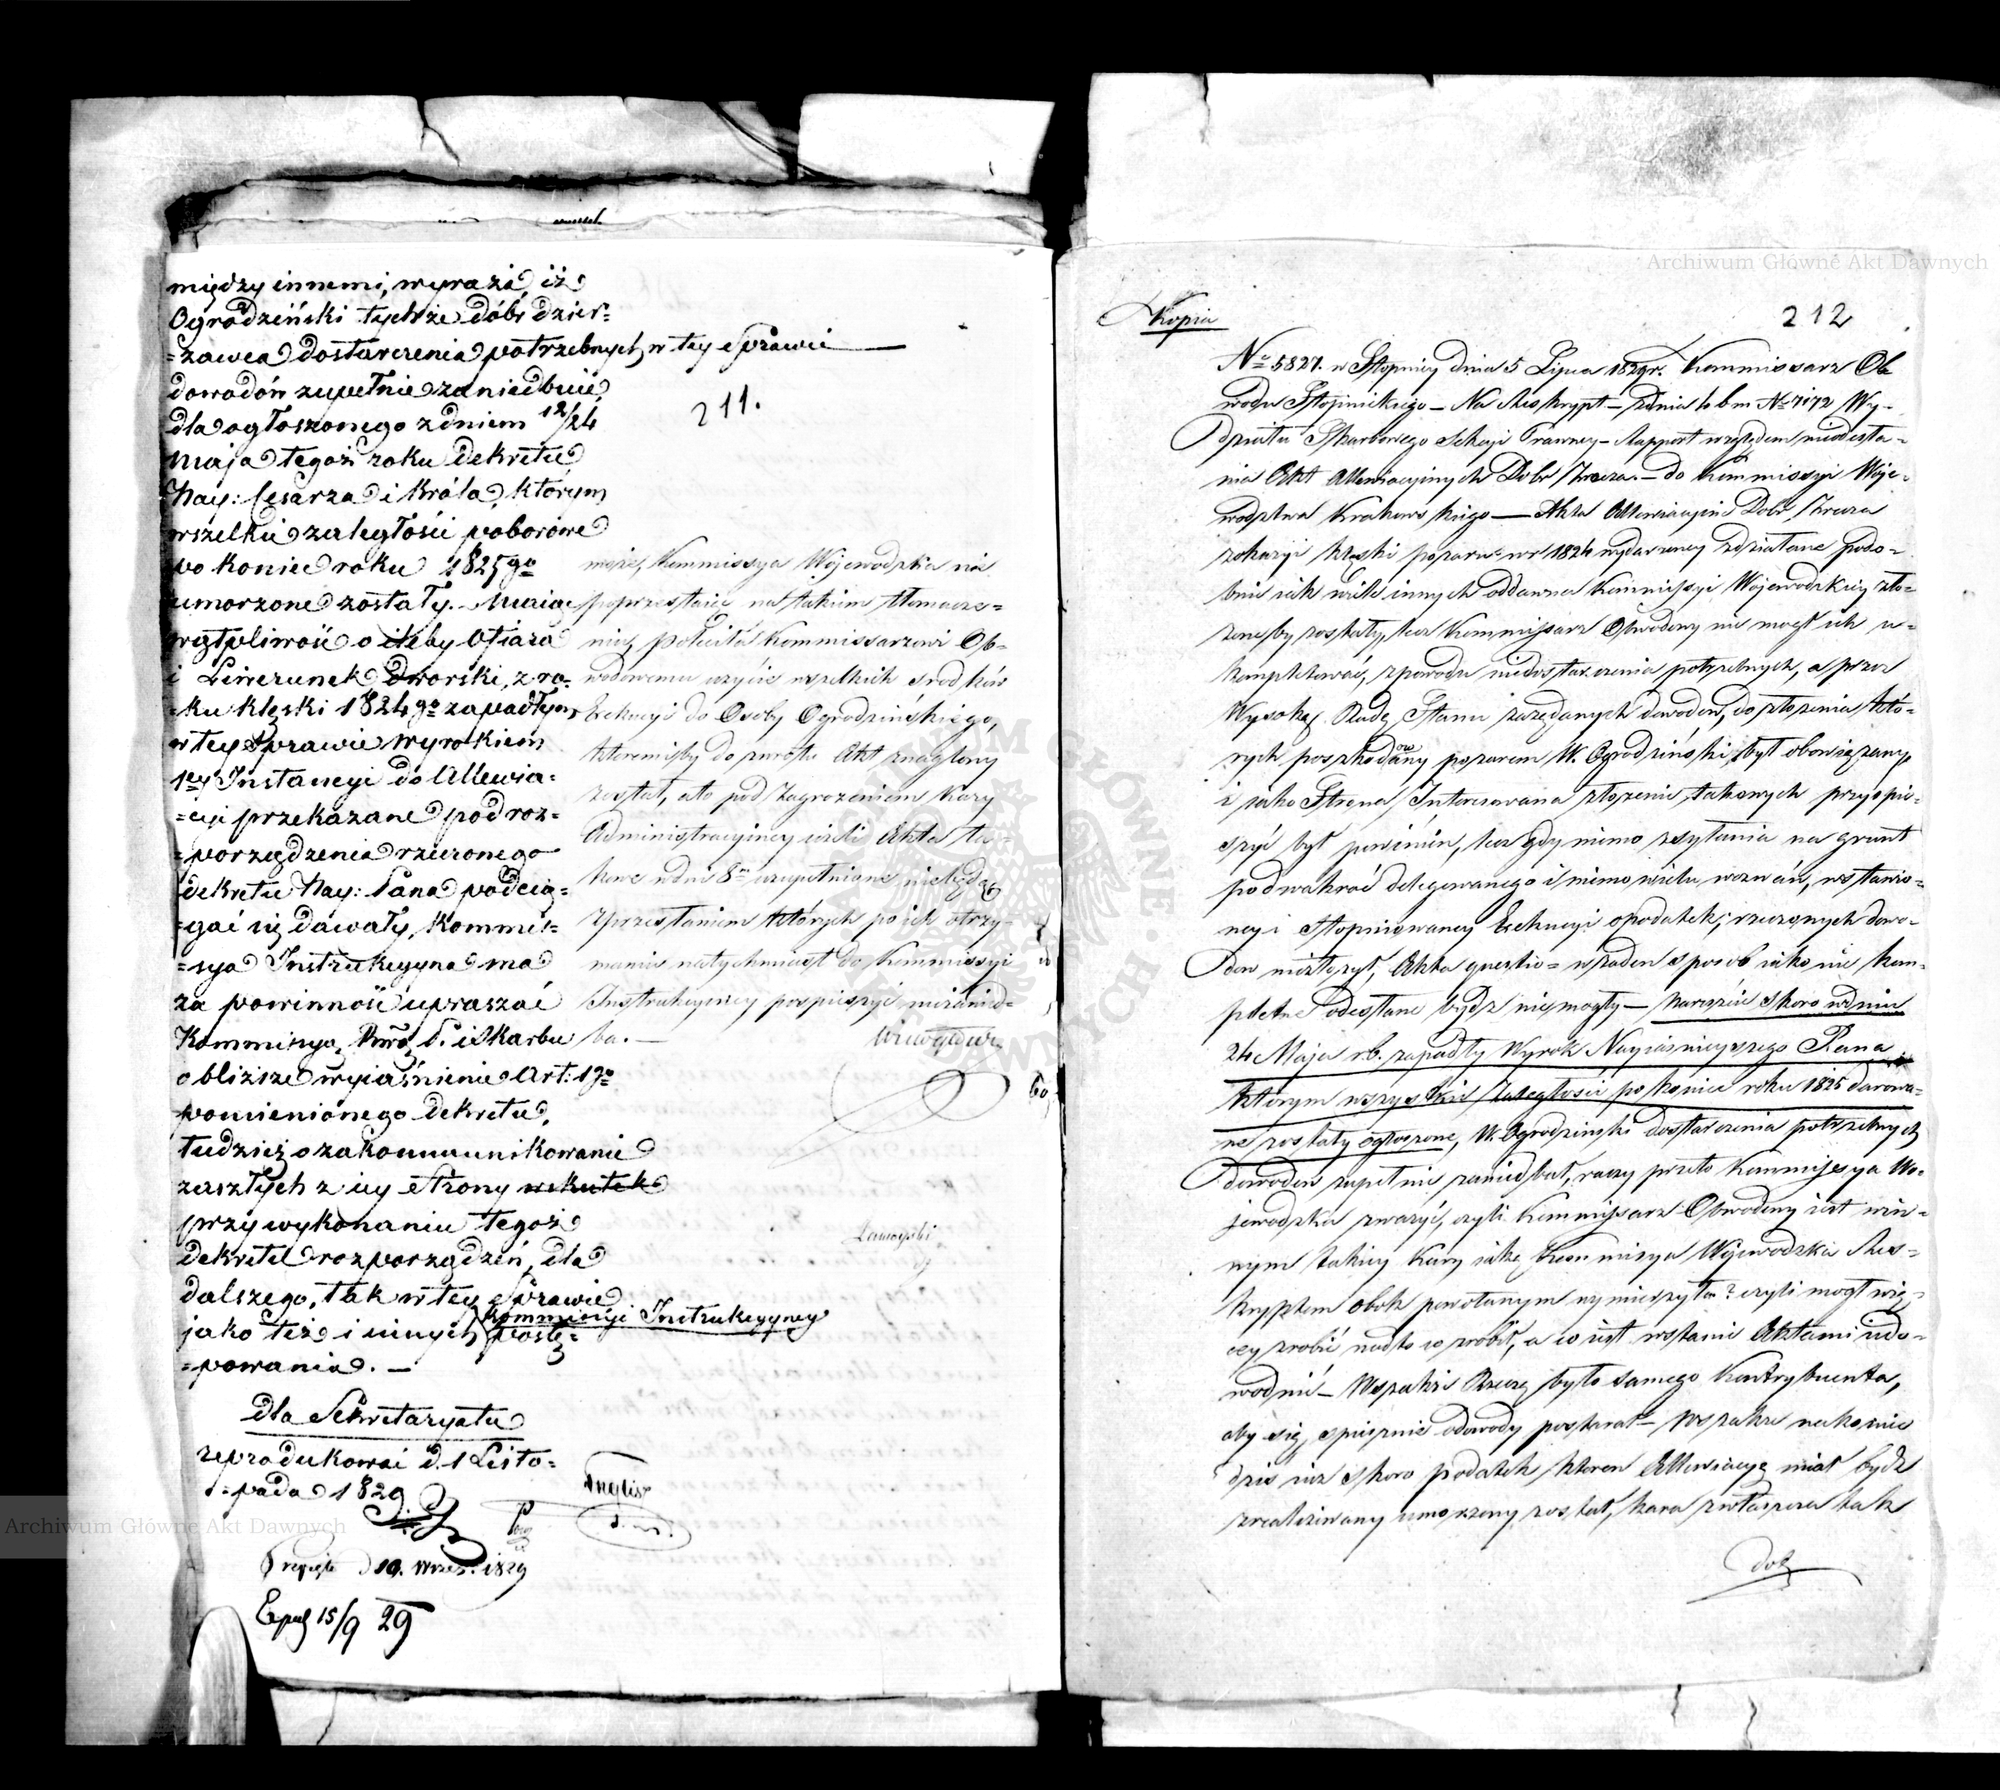 między innemi, wyraża, iż
Ogrodzeński tychże dóbr dzier=
=żawca dostarczenia potrzebnych w tey Sprawie
dowodów zupełnie zaniedbuje,
dla ogłoszonego z dniem 12/24
211.
Maja tegoż roku Dekretu
Nay: Cesarza i Króla, którym
wszelkie zaległości poborowe
po koniec roku 1825go
umorzone zostały. Maiąc
wątpliwość o ileby Ofiara
i Liwerunek Dworski, z ro=
=ku klęski 1824go zapadłym
w tey Sprawie Wyrokiem
1ey Instancyi do Allewia=
=cyi przekazane pod roz=
=porządzenia rzeczonego
Dekretu Nay: Pana podcią=
=gać się dawały, Kommis=
=sya Instrukcyyna ma
za powinność upraszać
Kommissyą Rząd. P. i Skarbu
o bliższe wyiaśnienie Art: 1go
pomienionego Dekretu,
tudzież o zakommunikowanie
zaszłych z iey Strony w skutek
przy wykonaniu tegoż
Dekretu rozporządzeń, dla
dalszego, tak w tey Sprawie
jako też i innych Kommissyi Instrukcyyney postę=
=powania. —
może, Kommissya Wojewodzka nie
poprzestaiąc na takiem tłomacze=
niu, poleciła Kommissarzowi Ob=
wodowemu użycie wszelkich środków
Exekucyi do Osoby Ogrodzińskiego,
któremiby do zwrotu Akt znaglony
został, a to pod zagrożeniem Kary
Administracyiney ieżeli Akta ta=
kowe w dni 8m uzupełnione nie będą
z przesłaniem których po ich otrzy=
maniu natychmiast do Kommissyi
Instrukcyiney pospieszyć niezanied=
ba. —
Zamoyski
dla Sekretaryatu
reprodukować d. 1 Listo=
=pada 1829
Przyięto d 10. Wrześ. 1829
Exped 15/9 29
Kopia
212
No 5827. w Stopnicy dnia 5 Lipca 1829r. Kommissarz Ob
wodu Stopnickiego — Na Reskrypt — z dnia b m No 7172 Wy=
działu Skarbowego Sekcyi Prawney — Rapport względem nieodesła=
nia Akt Allewiacyinych Dobr — do Kommissyi Woje=
wodztwa Krakowskiego — Akta Allewiacyine Dobr
z okazyi klęski pożaru w r 1824 wydarzoney zdziałane podo=
bnie iak wiele innych oddawna Kommissyi Wojewodzkiey zło=
żoneby zostały, lecz Kommissarz Obwodowy nie mogł ich u=
kompletować, z powodu niedostarczenia potrzebnych, a przez
Wysoką Radę Stanu zażądanych dowodów, do złożenia któ=
rych poszkodowany pożarem W. Ogrodziński był obowiązany
i jako Strona Interesowana złożenie takowych przyspie=
szyć był powinien, lecz gdy mimo zsyłania na grunt
podwakroć delegowanego i mimo wielu wezwań, wstawio=
ney i stopniowaney Exekucyi o podatek, rzeczonych dowo=
dow niezłożył, Akta questio= w żaden sposob iako nie kom=
pletne odesłane bydź niemogły — nareszcie skoro w dniu
24 Maja r.b. zapadły Wyrok Nayiaśnieyszego Pana,
którym wszystkie zaległości po koniec roku 1825 darowa=
ne zostały ogłoszono, W. Ogrodzinski dostarczenia potrzebnych
dowodow zupełnie zaniedbał, raczy przeto Kommissya Wo=
jewodzka zważyć, czyli Kommissarz Obwodowy iest win=
nym takiey Kary iaką Kommissya Wojewodzka Res=
kryptem obok powołanym wymierzyła? czyli mogł wię=
cey zrobić nad to co zrobił, a co iest wstanie Aktami udo=
wodnić — Wszakże Rzeczą było samego Kontrybuenta,
aby się spiesznie o dowody postarał — wszakże nakoniec
dziś iuż skoro podatek ktoren Allewiacyą miał bydź
zrealizowany umorzony został, kara zwłaszcza tak
dol